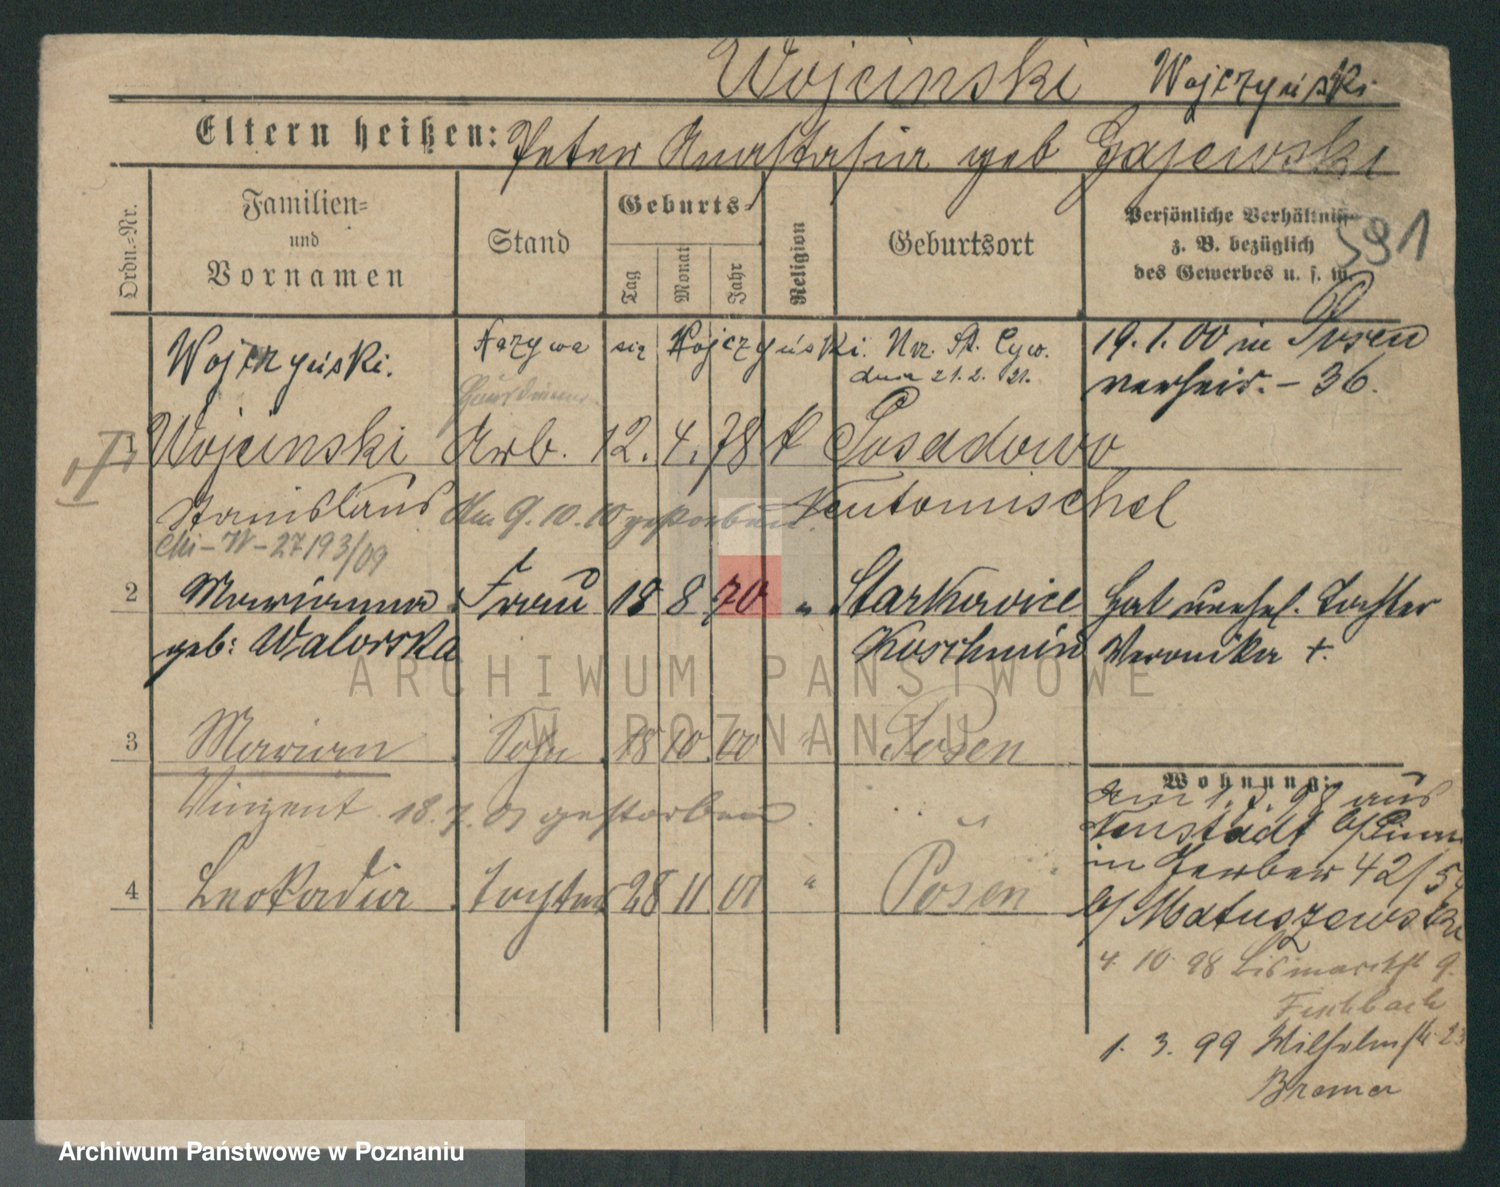 Wojcinski Wojczyński
Eltern heißen: Peter Anastasia geb Gajewski
Ordn.=Nr.
Familien=
und
Vornamen
Stand
Geburts=
Tag
Monat
Jahr
Religion
Geburtsort
Persönliche Verhältnisse
z. B. bezüglich
des Gewerbes u. s. w.
591
Wojczyński. Nazywa się Wojczyński. Urz. St. Cyw.
dnia 21.2.21.
19.1.00 in Posen
verheir. - 36.
1 Wojcinski Arb. 12. 4. 78 k Posadowo
Stanislaus Am 9.10.10 gestorben. Neutomischel
2 Marianna Frau 18 8 70 " Starkowice Hat unehel. Tochter
geb: Walorska Koschmin Veronika +.
3 Marian Sohn 18 10 00 " Posen
Vinzent 18.7.01 gestorben
4 Leokadia Tochter 28 11 01 " Posen
Wohnung:
am 1.7.98 aus
Neustadt b/Pinne
in Gerber 42/54
b/Matuszewski
4. 10. 98 Bismarckst 9.
Fischbach
1. 3. 99 Wilhelmstr 23
Bremer
ARCHIWUM PAŃSTWOWE
W POZNANIU
Archiwum Państwowe w Poznaniu